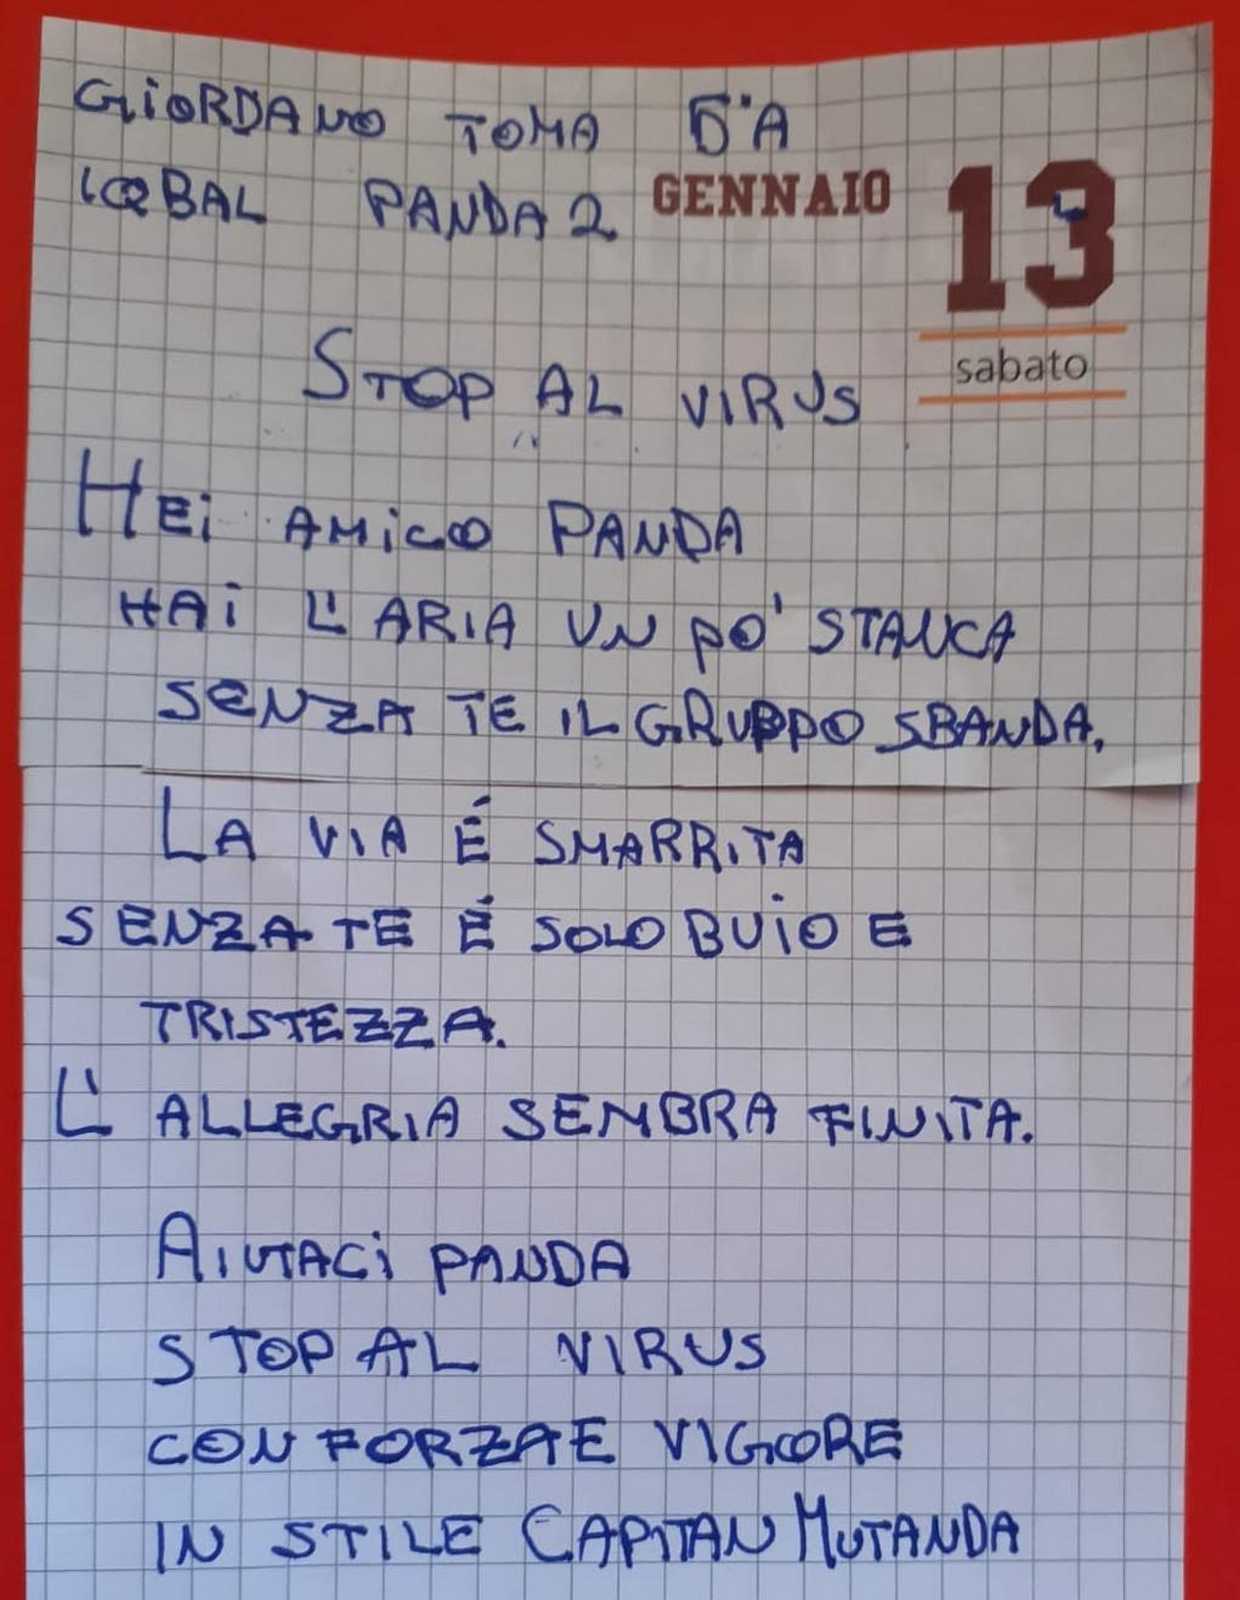 GIORDANO TOMA 5ªA
IQBAL PANDA 2
GENNAIO 13
sabato
STOP AL VIRUS
HEI AMICO PANDA
HAI L'ARIA UN PO' STANCA
SENZA TE IL GRUPPO SBANDA.
LA VIA É SMARRITA
SENZA TE É SOLO BUIO E
TRISTEZZA.
L'ALLEGRIA SEMBRA FINITA.
AIUTACI PANDA
STOP AL VIRUS
CON FORZA E VIGORE
IN STILE CAPITAN MUTANDA